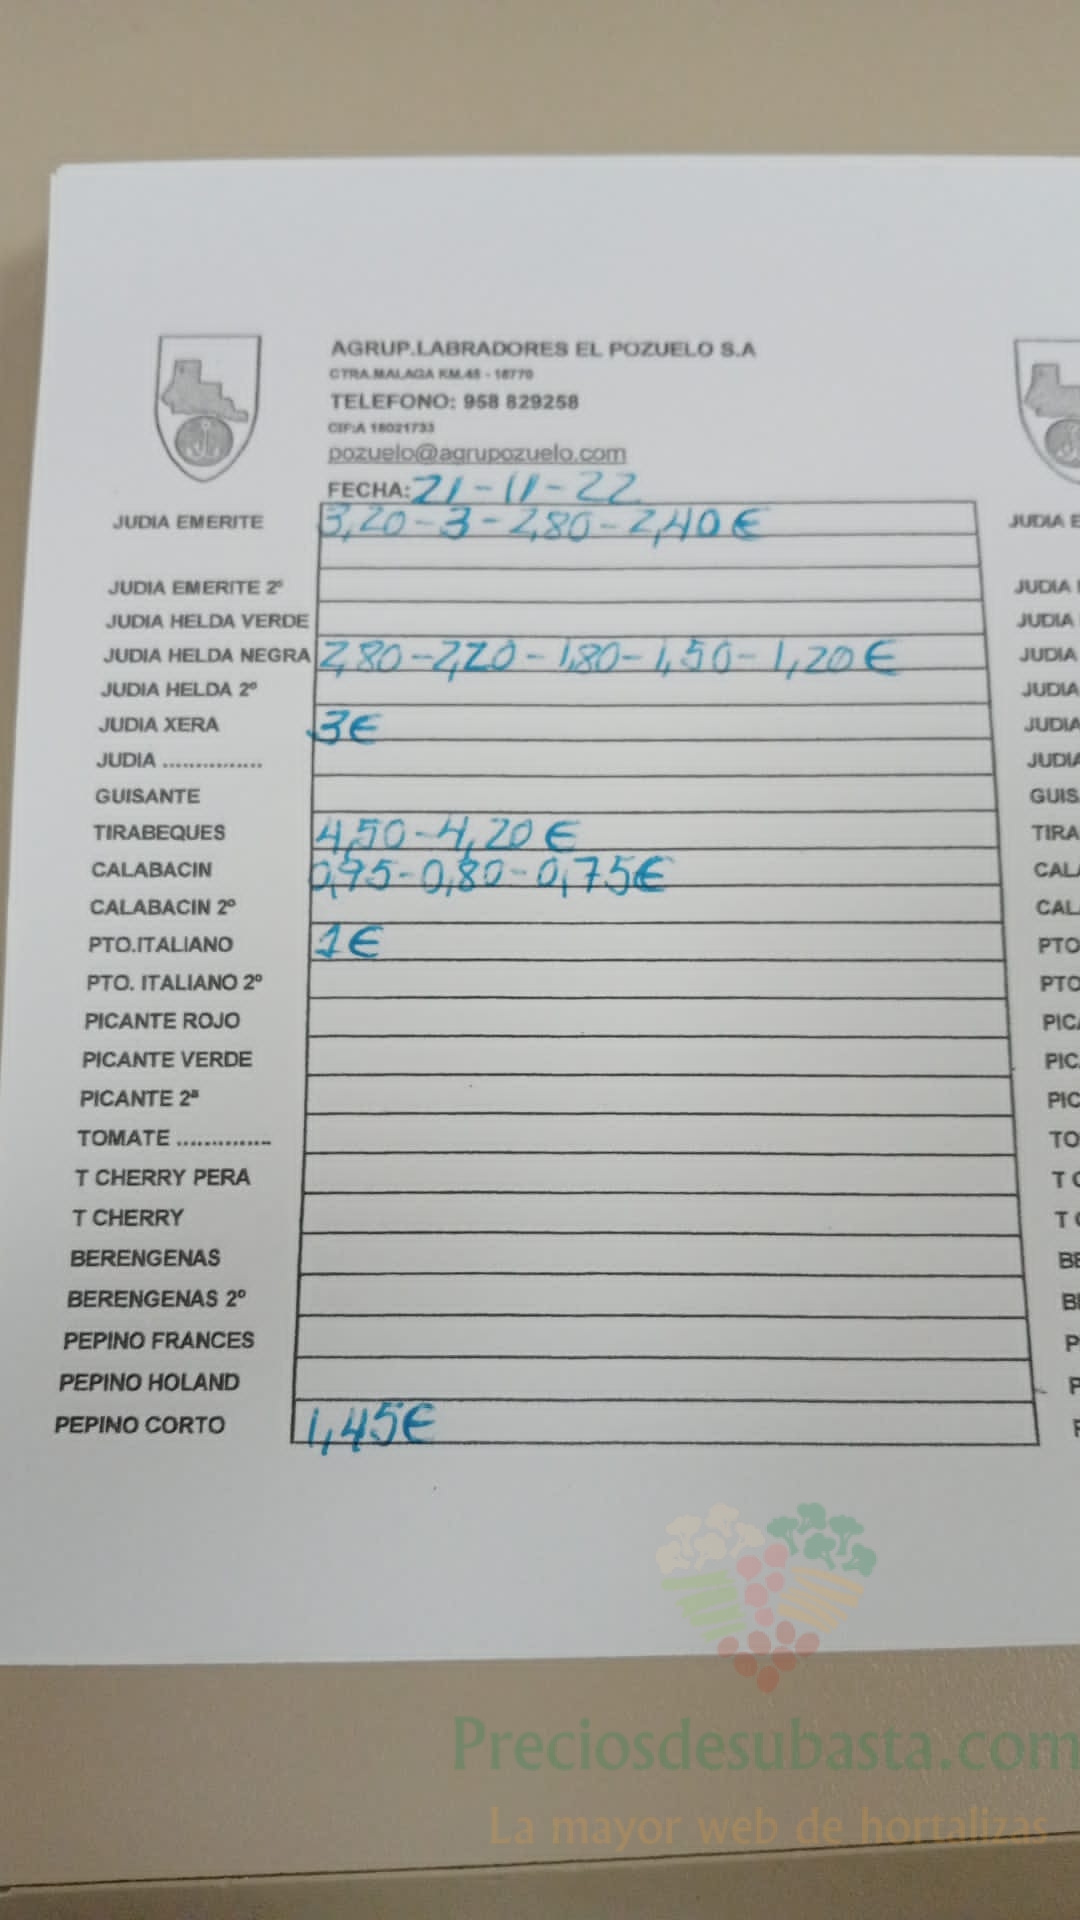 AGRUP.LABRADORES EL POZUELO S.A
CTRA.MALAGA KM.45 - 18770
TELEFONO: 958 829258
CIF:A 18021733
pozuelo@agrupozuelo.com
FECHA: 21-11-22
JUDIA EMERITE 3,20-3-2,80-2,40€
JUDIA EMERITE 2º
JUDIA HELDA VERDE
JUDIA HELDA NEGRA 2,80-2,20-1,80-1,50-1,20€
JUDIA HELDA 2º
JUDIA XERA 3€
JUDIA ...............
GUISANTE
TIRABEQUES 4,50-4,20€
CALABACIN 0,95-0,80-0,75€
CALABACIN 2º
PTO.ITALIANO 1€
PTO. ITALIANO 2º
PICANTE ROJO
PICANTE VERDE
PICANTE 2ª
TOMATE ..............
T CHERRY PERA
T CHERRY
BERENGENAS
BERENGENAS 2º
PEPINO FRANCES
PEPINO HOLAND
PEPINO CORTO 1,45€
JUDIA E
JUDIA
JUDIA
JUDIA
JUDIA
JUDIA
JUDIA
GUIS
TIRA
CAL
CAL
PTO
PTO
PIC
PIC
PIC
TO
T C
T C
BE
BE
P
P
P
Preciosdesubasta.com
La mayor web de hortalizas